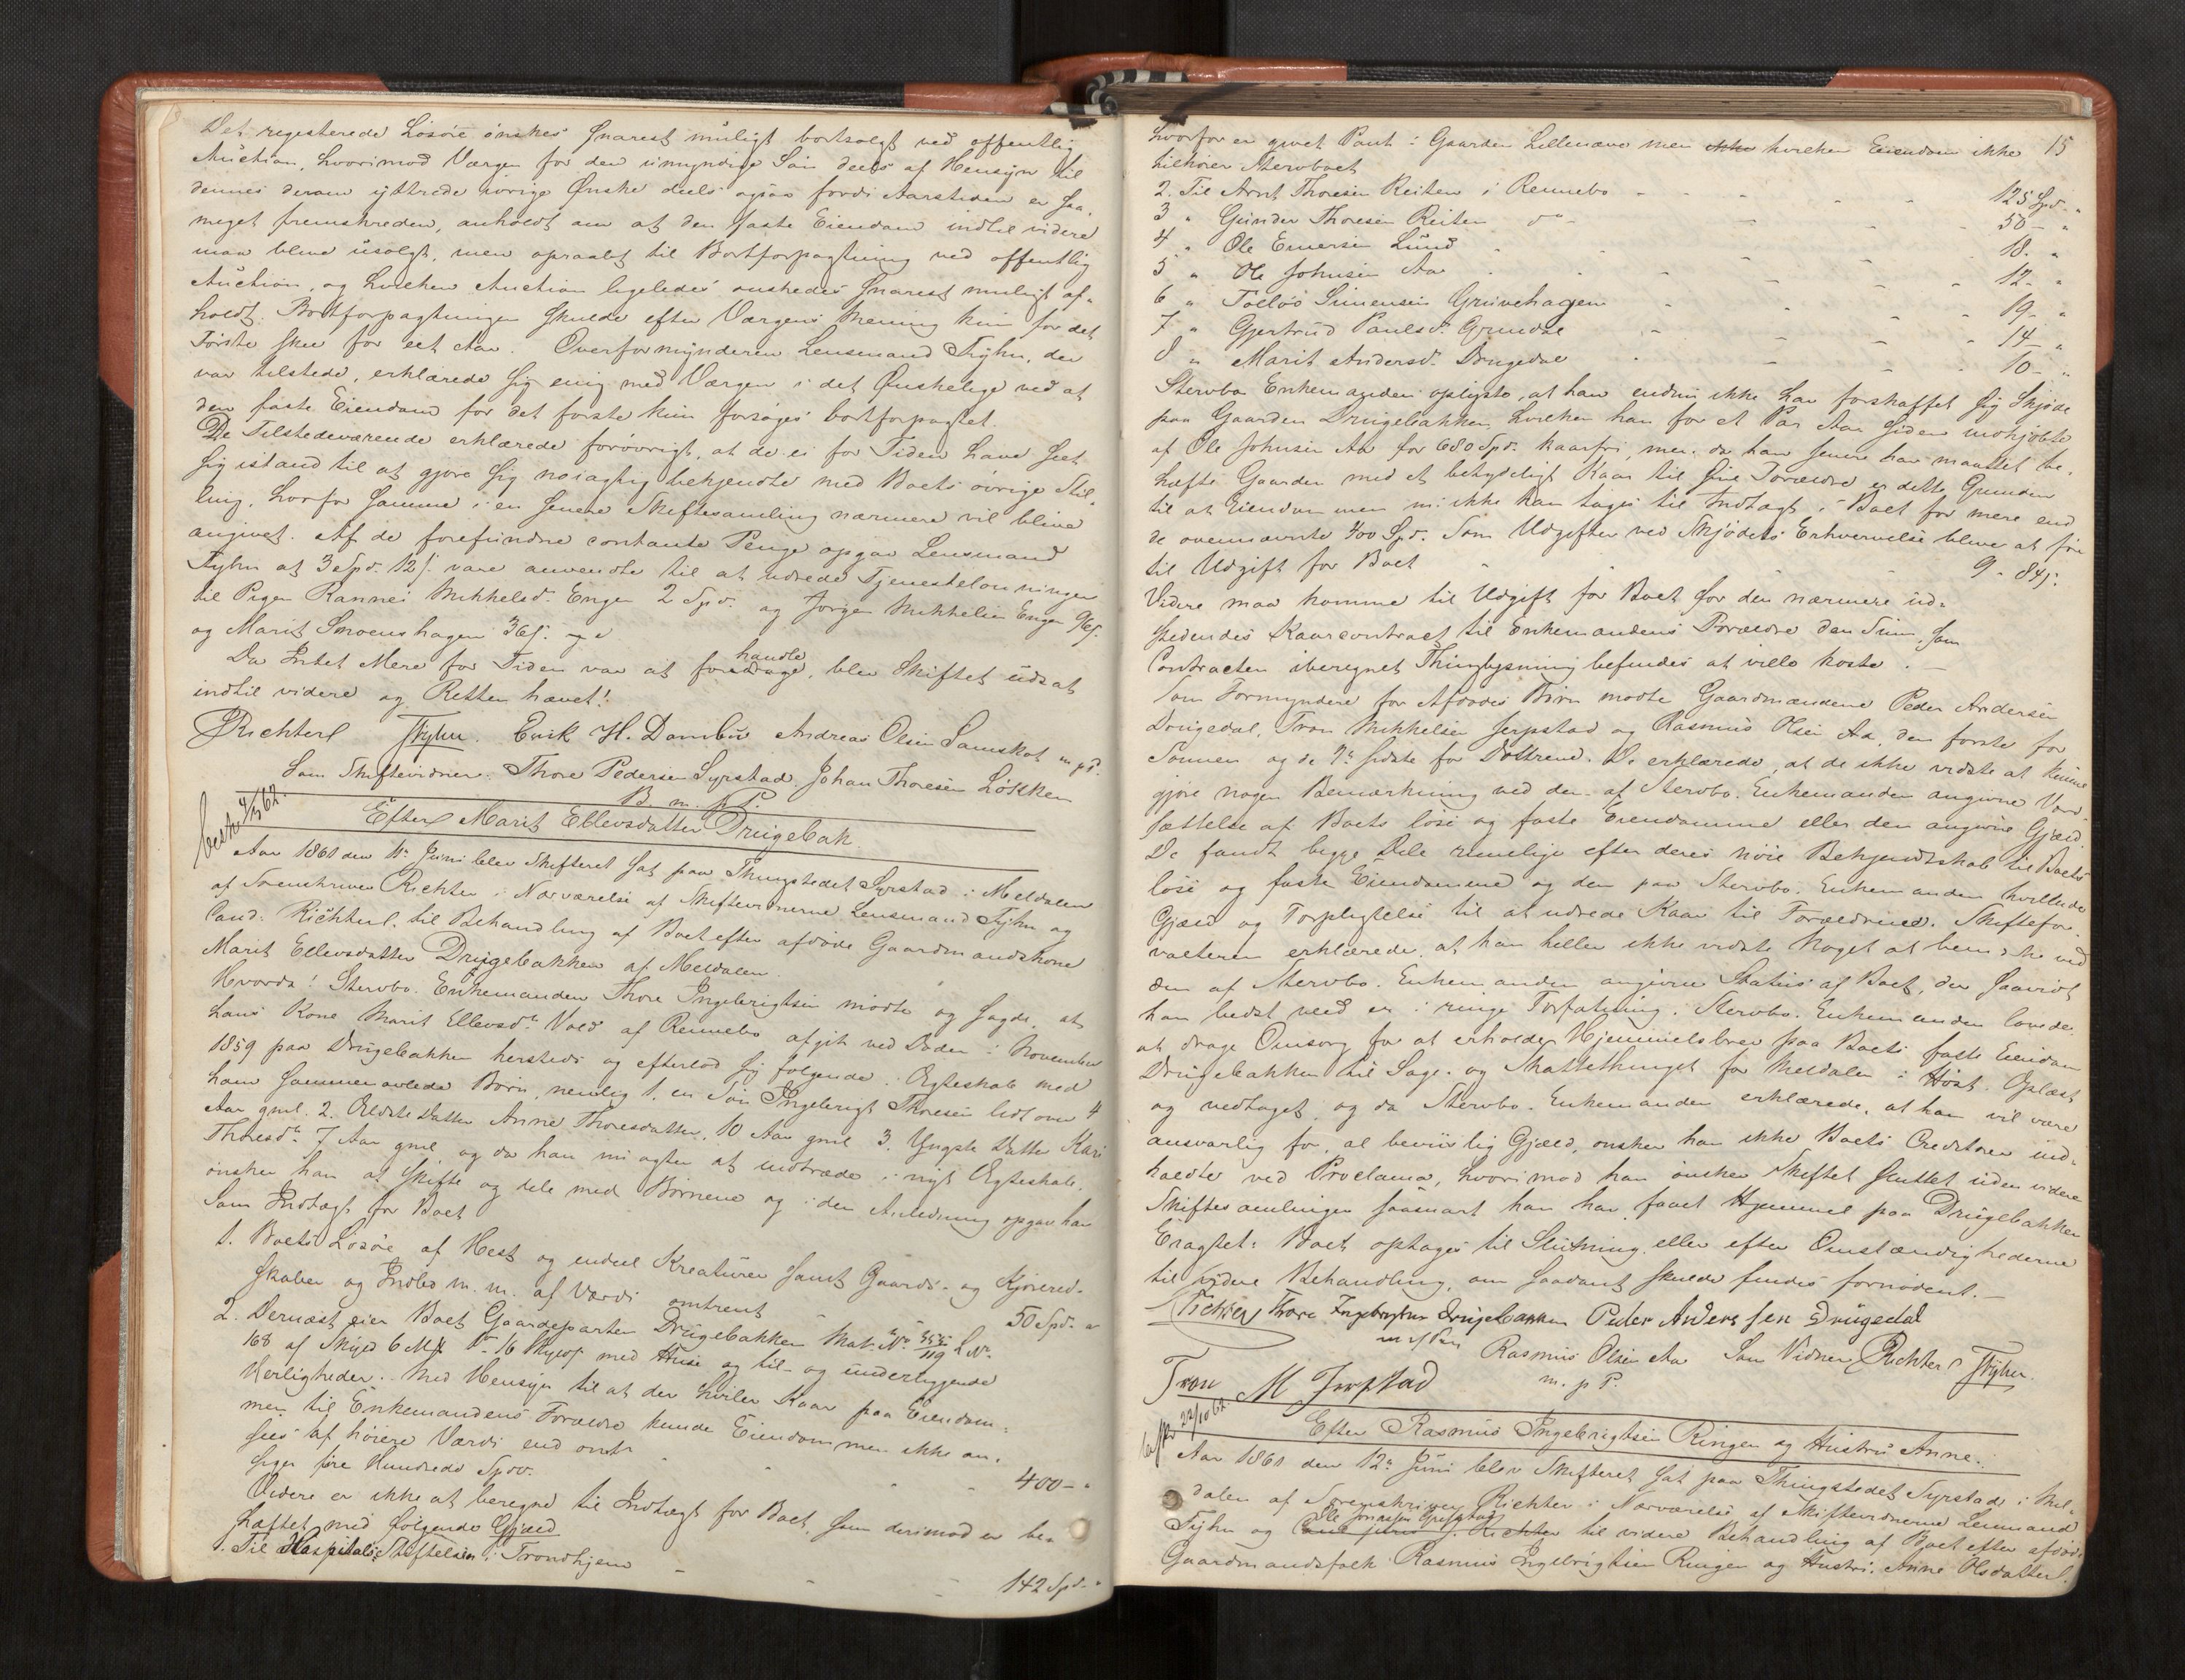 Det registerede Løsøre ønskes snarest muligt bortsolgt ved offentlig
Auction, hvorimod Værgen for den umyndige Søn deels af Hensyn til
dennes derom yttrede ivrige Ønske deels ogsaa fordi Aarstiden er saa
meget fremskreden, anholdt om at den faste Eiendom indtil videre
maa blive usolgt, men opraabt til Bortforpagtning ved offentlig
Auction, og hvilken Auction ligeledes ønskedes snarest muligt af-
holdt. Bortforpagtningen skulde efter Værgens Mening kun for det
Første skee for eet Aar. Overformynderen Lensmand Tyhn, der
var tilstede, erklærede sig enig med Værgen i det Ønskelige ved at
den faste Eiendom for det første kun forsøges bortforpagtet.
De Tilstedeværende erklærede forøvrigt, at de ei for Tiden have seet
sig istand til at gjøre sig nøiagtig bekjendte med Boets øvrige Stil-
ling, hvorfor samme i en senere Skiftesamling nærmere vil blive
angivet. Af de forefundne contante Penge opgav Lensmand
Tyhn at 3 Spd. 12 s. vare anvendte til at udrede Tjenestelønningen
til Pigen Rannei Mikkelsd. Engen 2 Spd. og Jørgen Mikkelsen Engen 96 s.
og Marit Smoenshagen 36 s.
Da Intet Mere for Tiden var at forehandle, blev Skiftet udsat
indtil videre og Retten hævet!
Richter Tyhn. Erik H. Dambu Andreas Olsen Lamskot m. p. P.
Som Skiftevidner. Thore Pedersen Syrstad. Johan Thoresen Løkken
m. p. P.
Efter Marit Ellevsdatter Drugebak.
Aar 1861 den 11te Juni blev Skifteret sat paa Thingstedet Syrstad i Meldalen
af Sorenskriver Richter i Nærværelse af Skiftevidnerne Lensmand Tyhn og
Cand. Richter, til Behandling af Boet efter afdøde Gaardmandskone
Marit Ellevsdatter Drugebakken af Meldalen.
Hvorda! Stervbo-Enkemanden Thore Ingebrigtsen mødte og sagde, at
hans Kone Marit Ellevsdr. Vold af Rennebo afgik ved Døden i November
1859 paa Drugebakken hersteds og efterlod sig følgende i Egteskab med
ham sammenavlede Børn, nemlig 1. en Søn Ingebrigt Thoresen lidt over 4
Aar gml. 2. Ældste Datter Anne Thoresdatter, 10 Aar gml. 3. Yngste Datter Kari
Thoresdr. 7 Aar gml. og da han nu agter at indtræde i nyt Egteskab,
ønsker han at skifte og dele med Børnene og i den Anledning opgav han
Som Indtægt for Boet
1. Boets Løsøre af Hest og endeel Kreaturer samt Gaards- og Kjørered-
skaber og Indbo m. m. af Værdi omtrent 50 Spd. "
2. Dernæst eier Boet Gaardeparten Drugebakken Mat. No. 119 L No.
168 af Skyld med Huse og til- og underliggende
Herligheder. Med Hensyn til at der hviler Kaar paa Eiendom-
men til Enkemandens Forældre kunde Eiendommen ikke an-
sees af høiere Værdi end omtr. 400 - "
siger fire Hundrede Spd.
Videre er ikke at beregne til Indtægt for Boet, som derimod er be-
hæftet med følgende Gjæld
1. Til Hospitals Stiftelsen i Trondhjem 142 Spd. "
15
hvorfor er givet Pant i Gaarden Lillenæve men hvilken Eiendom ikke
tilhører Stervboet
2. Til Arnt Thoresen Reiten i Rennebo 125 Spd. "
3 " Gunder Thoresen Reiten do 50 - "
4 " Ole Einersen Lund 18. "
5 " Ole Johnsen Aa 12 - "
6 " Tollos Simensen Gruvehagen 19 - "
7 " Gjertrud Paulsd. Grindal 14 "
8 " Marit Andersd. Drugedal 10 - "
Stervbo Enkemanden oplyste, at han endnu ikke har forskaffet sig Skjøde
paa Gaarden Drugebakken, hvilken han for et Par Aar siden indkjøbte
af Ole Johnsen Aa for 680 Spd. kaarfri, men da han senere har maattet be-
hefte Gaarden med et betydeligt Kaar til sine Forældre er dette Grunden
til at Eiendommen nu ikke kan tages til Indtægt i Boet for mere end
de ovennævnte 400 Spd. Som Udgifter ved Skjødets Erhvervelse bliver at føre
til Udgift for Boet 9 - 84 s.
Videre maa komme til Udgift for Boet for den nærmere ud-
stedendes Kaarcontract til Enkemandens Forældre den Sum, som
Contracten iberegnet Thinglysning befindes at ville koste.
Som Formyndere for Afdødes Børn mødte Gaardmændene Peder Andersen
Drugedal, Tron Mikkelsen Jerpstad og Rasmus Olsen Aa, den første for
Sønnen og de 2de sidste for Døttrene. De erklærede, at de ikke vidste at kunne
gjøre nogen Bemærkning ved den af Stervbo-Enkemanden angivne Værd-
sættelse af Boets løse og faste Eiendomme eller den angivne Gjæld.
De fandt begge Dele rimelige efter deres nøie Bekjendtskab til Boets
løse og faste Eiendomme og den paa Stervbo-Enkemanden hvilende
Gjæld og Forpligtelse til at udrede Kaar til Forældrene. Skiftefor-
valteren erklærede, at han heller ikke vidste Noget at bemærke ved
den af Stervbo-Enkemanden angivne Status af Boet, der saavidt
han bedst veed er i ringe Forfatning. Stervbo-Enkemanden lovede
at drage Omsorg for at erholde Hjemmelsbrev paa Boets faste Eiendom
Drugebakken til Sage- og Skattethinget for Meldalen i Høst. Oplæst
og vedtaget, og da Stervbo-Enkemanden erklærede, at han vil være
ansvarlig for al beviislig Gjæld, ønsker han ikke Boets Creditorer ind-
kaldte ved Proclama, hvorimod han ønsker Skiftet sluttet uden videre
Skiftesamlinger saasnart han har faaet Hjemmel paa Drugebakken
Eragtet: Boet optages til Slutning eller efter Omstændighederne
til videre Behandling, om saadant skulde findes fornødent.
Richter Thore Ingebrigtsen Drugebakken Peder Andersen Drugedal
Rasmus Olsen Aa Som Vidner Richter Tyhn.
m. p. P.
Tron M Jerpstad
Efter Rasmus Ingebrigtsen Ringen og Hustru Anne.
Aar 1861 den 12te Juni blev Skifteret sat paa Thingstedet Syrstad i Mel-
dalen af Sorenskriver Richter i Nærværelse af Skiftevidnerne Lensmand
Tyhn og til videre Behandling af Boet efter afdøde
Gaardmandsfolk Rasmus Ingebrigtsen Ringen og Hustru Anne Olsdatter.